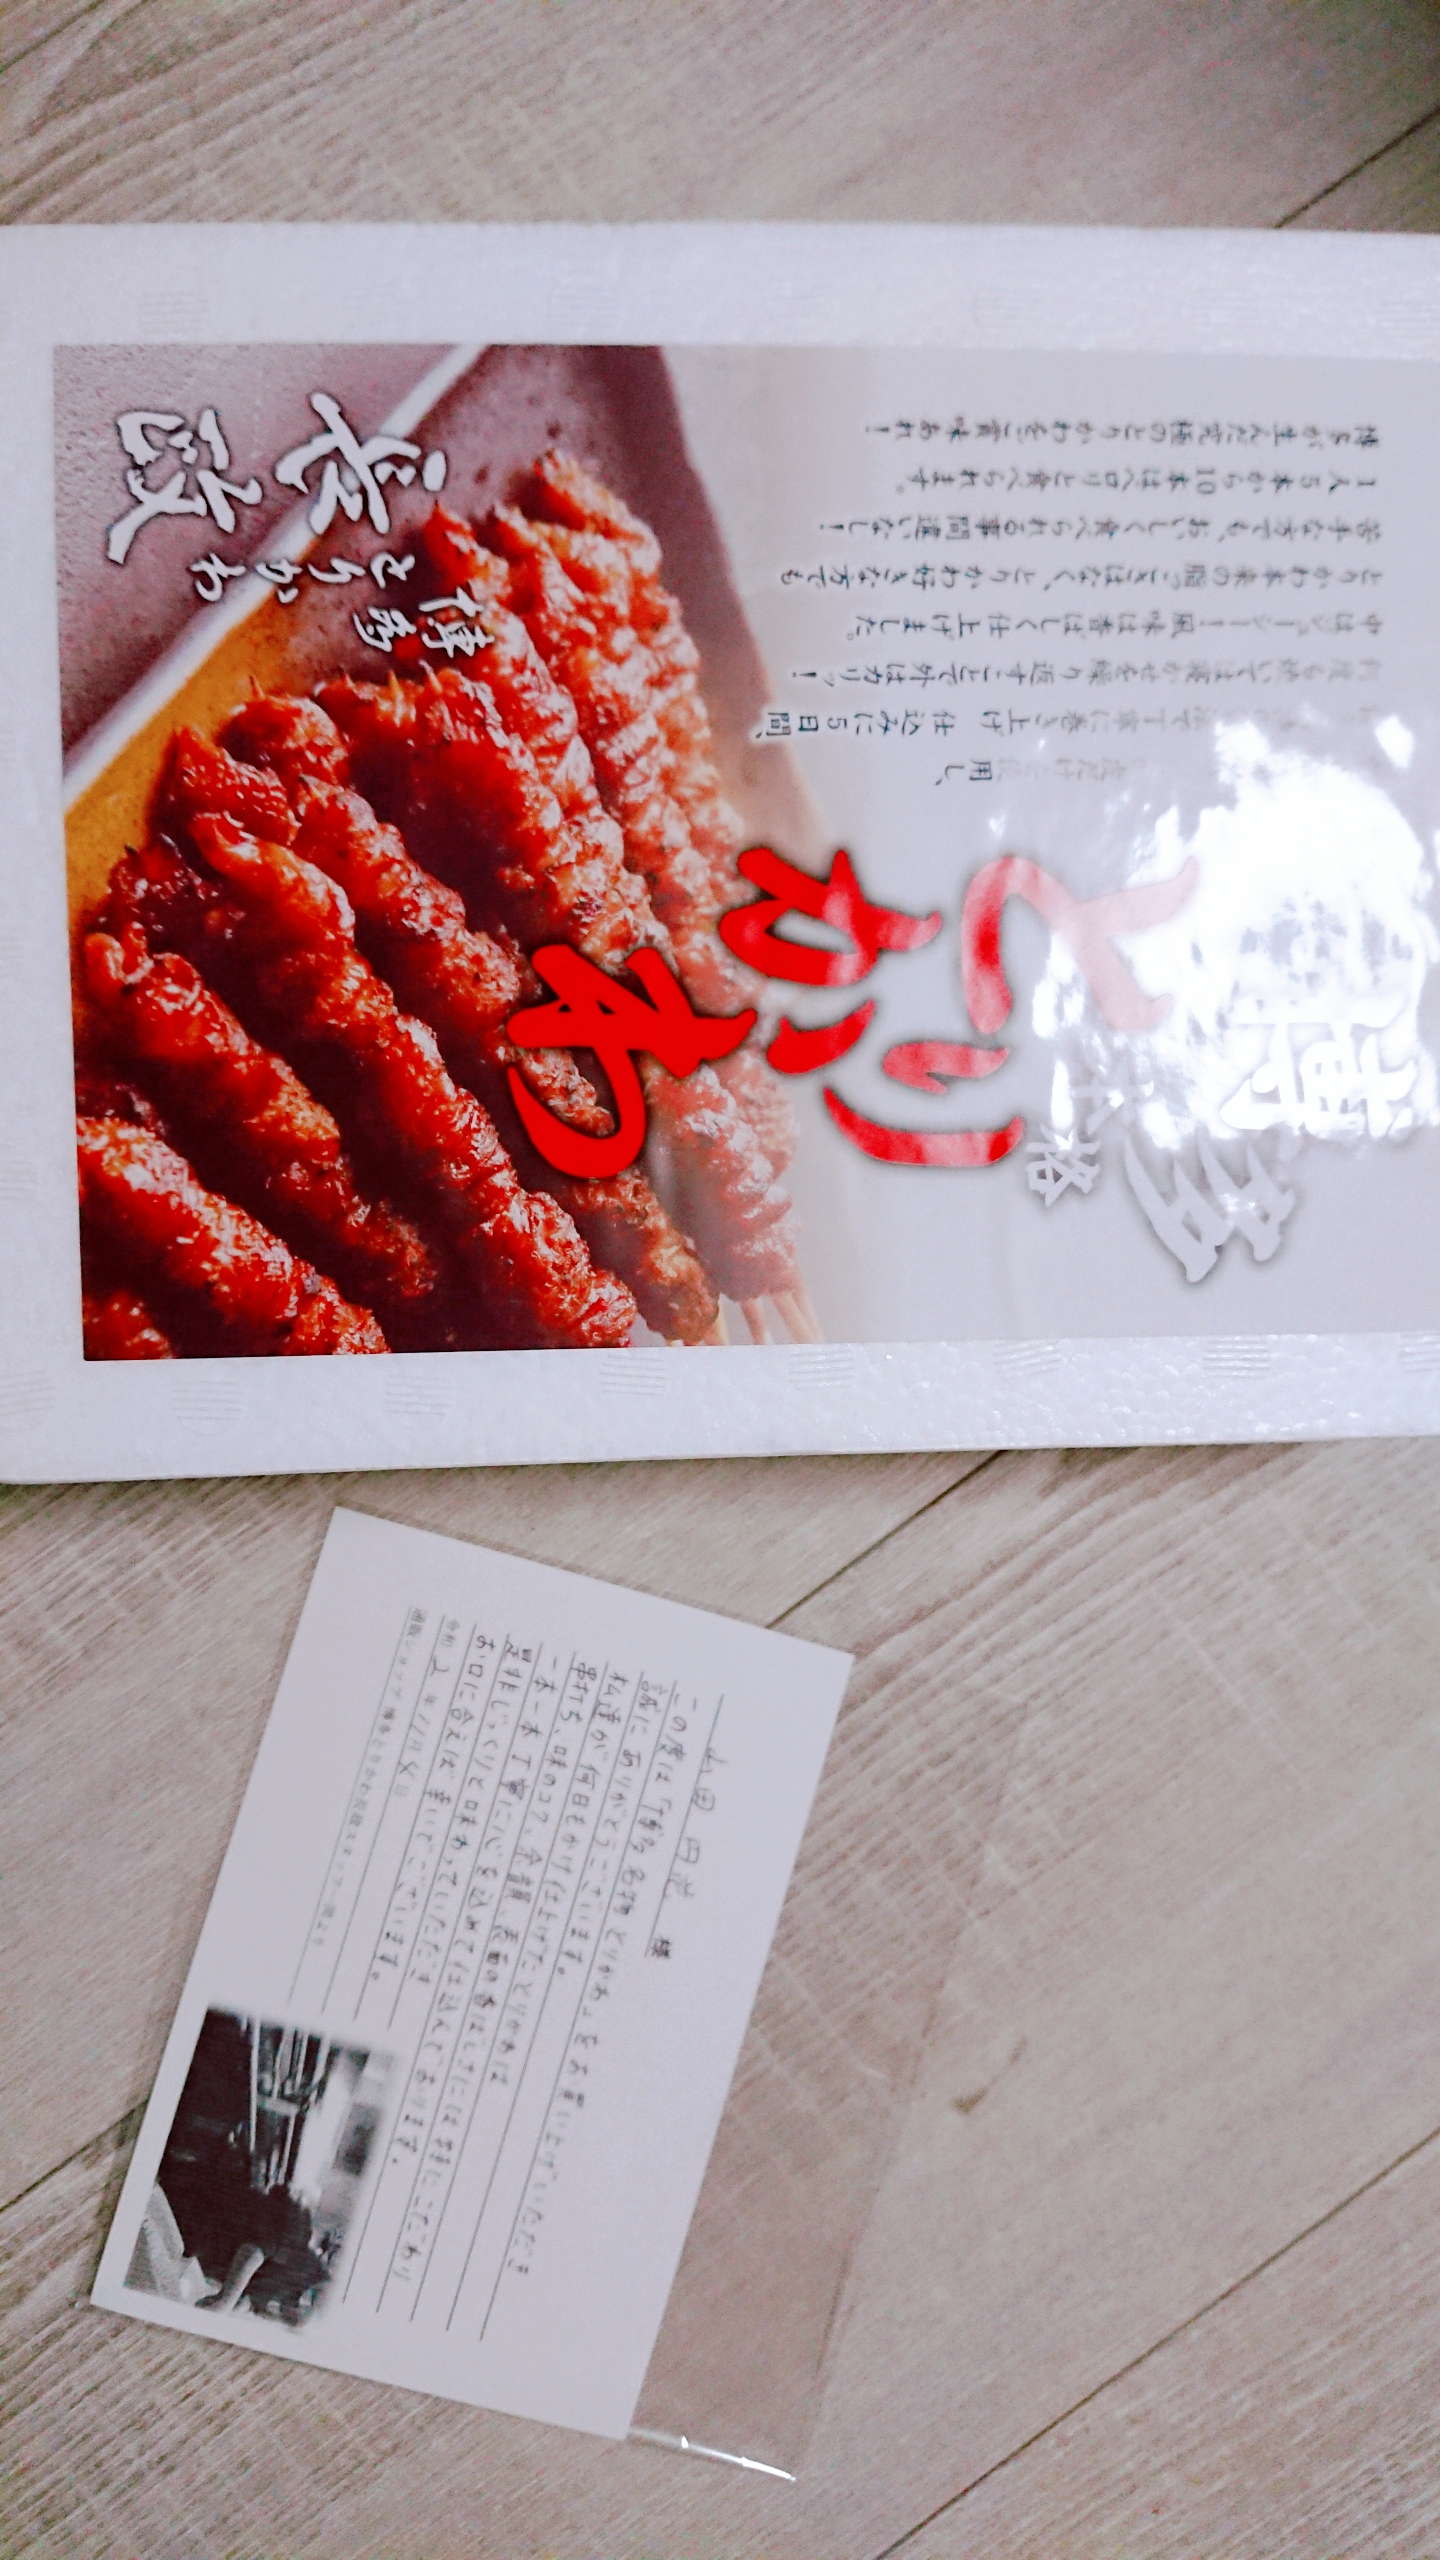 博多
本格
とりかわ
用し、
丁寧に巻き上げ 仕込みに5日間、
返すことで外はカリッ!
中はジューシー!風味は香ばしく仕上げました。
とりかわ本来の脂っこさはなく、とりかわ好きな方でも
苦手な方でも、おいしく食べられる事間違いなし!
1人5本から10本はペロリと食べられます。
博多が生んだ究極のとりかわをご賞味あれ!
博多
とりかわ
長政
山田 様
この度は「博多名物とりかわ」をお買い上げいただき
誠にありがとうございます。
私達が何日もかけ仕上げたとりかわは
串打ち、味のコク、食韻、表面の香ばしさには特にこだわり
一本一本丁寧に心を込めて仕込んであります。
是非じっくりと味わっていただき
お口に合えば幸いでございます。
令和2年11月8日
通販ショップ 博多とりかわ長政スタッフ一同より